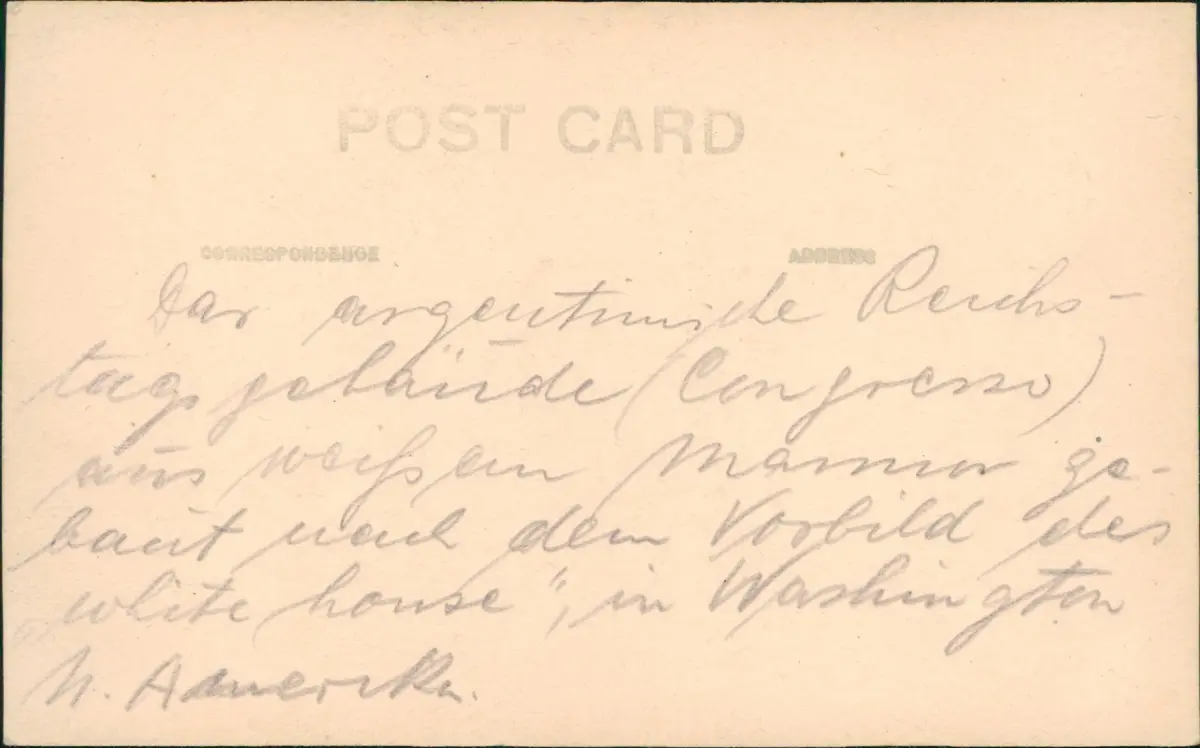 POST CARD
CORRESPONDENCE
ADDRESS
Das argentinische Reichs-
tagsgebäude (Congresso)
aus weißem Marmor ge-
baut nach dem Vorbild des
„white house“, in Washington
N. Amerika.